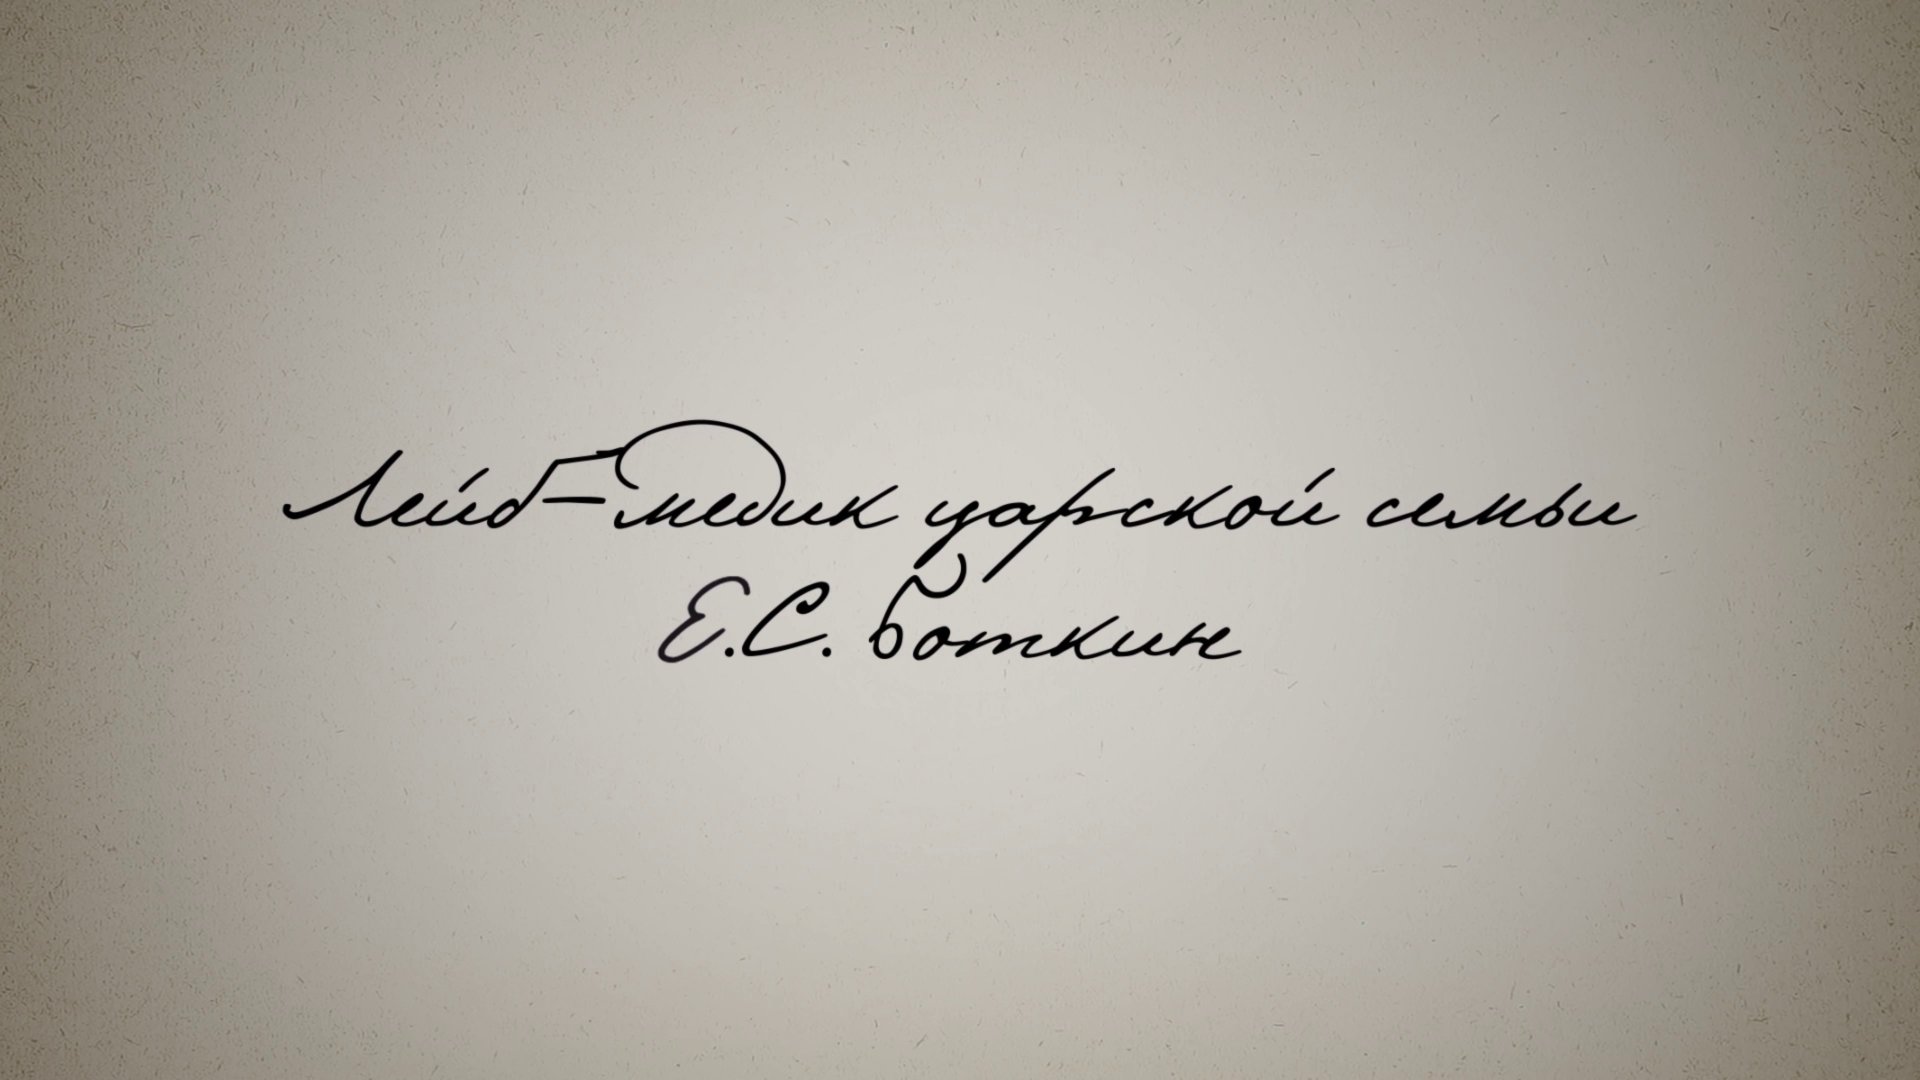 Лейб-медик царской семьи
Е.С. Боткин